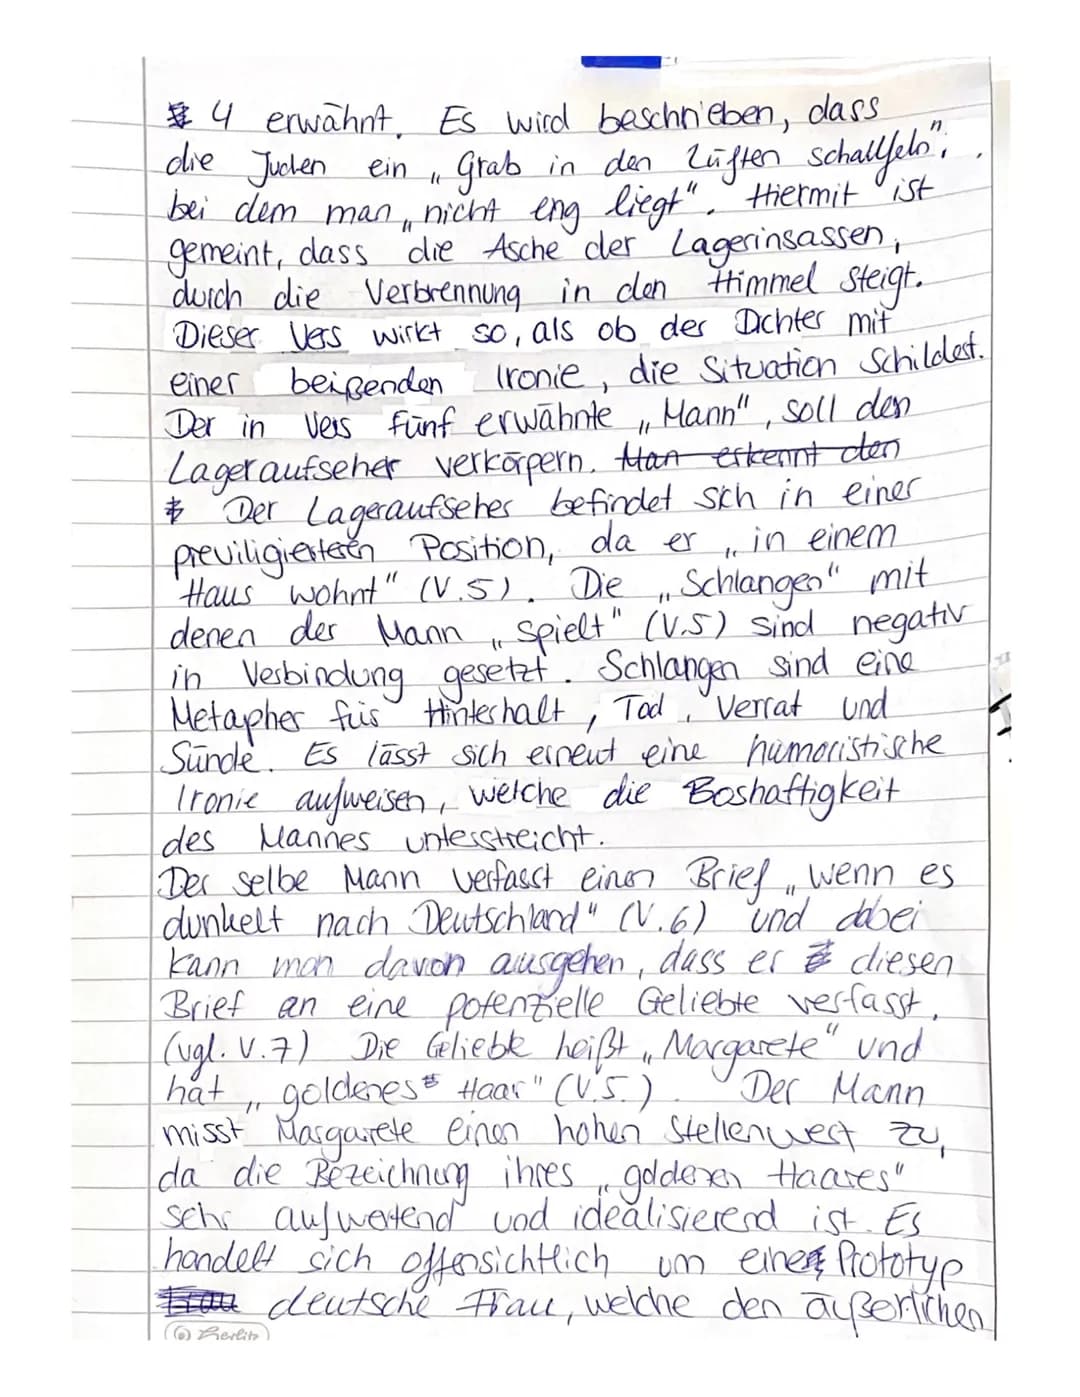 4 erwähnt. Es wird beschrieben, dass
die Juden ein „Grab in den Lüften schaufeln",
bei dem man „nicht eng liegt". Hiermit ist
gemeint, dass die Asche der Lagerinsassen,
durch die Verbrennung in den Himmel steigt.
Dieser Vers wirkt so, als ob der Dichter mit
einer beißenden Ironie, die Situation schildert.
Der in Vers fünf erwähnte „Mann", soll den
Lageraufseher verkörpern. Man erkennt den
Der Lageraufseher befindet sich in einer
previligierteren Position, da er „in einem
Haus wohnt" (V.5). Die „Schlangen" mit
denen der Mann „spielt" (V.5) sind negativ
in Verbindung gesetzt. Schlangen sind eine
Metapher für Hinterhalt, Tod, Verrat und
Sünde. Es lässt sich erneut eine humoristische
Ironie aufweisen, welche die Boshaftigkeit
des Mannes unterstreicht.
Der selbe Mann verfasst einen Brief „wenn es
dunkelt nach Deutschland" (V.6) und dabei
kann man davon ausgehen, dass er diesen
Brief an eine potenzielle Geliebte verfasst.
(vgl. V.7) Die Geliebte heißt „Margarete" und
hat „goldenes Haar" (V.5.). Der Mann
misst Margarete einen hohen Stellenwert zu,
da die Bezeichnung ihres „goldenen Haares"
sehr aufwertend und idealisierend ist. Es
handelt sich offensichtlich um einer Prototyp
Frau deutsche Frau, welche den äußerlichen
Berlitz